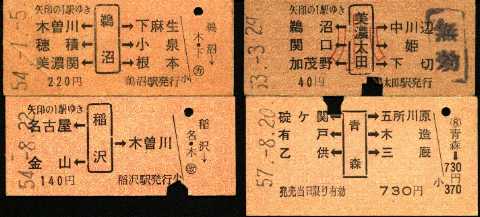 54.-1.-5
矢印の1駅ゆき
木曽川 鵜沼 下麻生
穂積 小泉
美濃関 根本
220円
鵜沼駅発行
鵜沼↓
木・
小
53.-3.24
矢印の1駅ゆき
鵜沼 美濃太田 中川辺
関口 姫
加茂野 下切
40円
太田駅発行
無効
54.-8.22
矢印の1駅ゆき
名古屋 稲沢 木曽川
金山
140円
稲沢駅発行
稲沢↓
名・木
小
57.-8.20
碇ヶ関 青森 五所川原
有戸 木造
乙供 三厩
発売当日限り有効
730円
(8)
青森↓
730円
小370